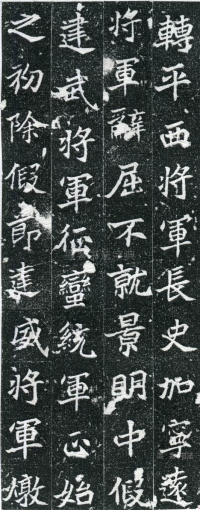 轉平西將軍長史加寧遠
將軍辭屈不就景明中假
建武將軍征蠻統軍正始
之初除假節建威將軍燉